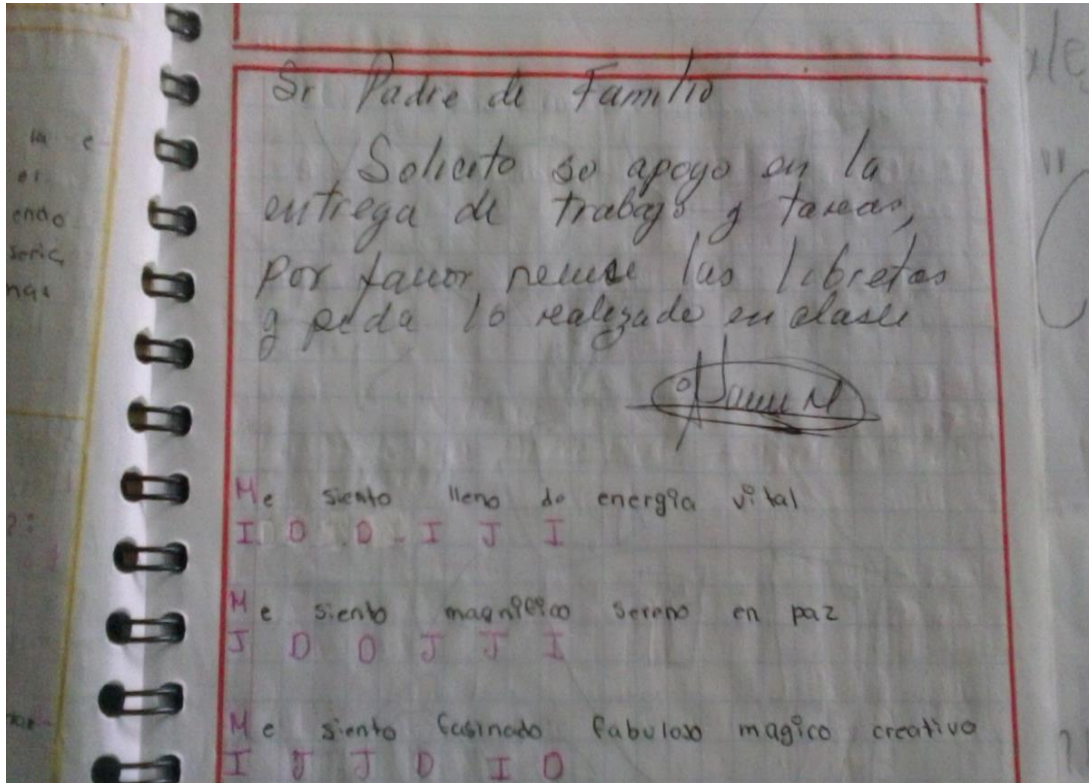 Sr Padre de Familia
Solicito so apoyo en la
entrega de trabajos y tareas,
por favor revise las libretas
y pida lo realizado en clase
Me siento lleno de energia vital
I D D I J I
Me siento magnifico sereno en paz
J D D J J I
Me siento fasinado fabuloso magico creativo
I J J D I D